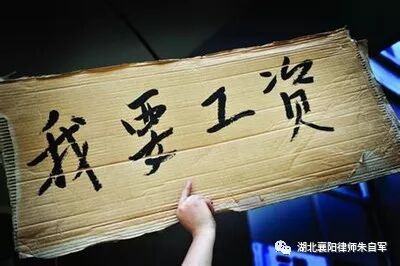 我要工资
湖北襄阳律师朱自军